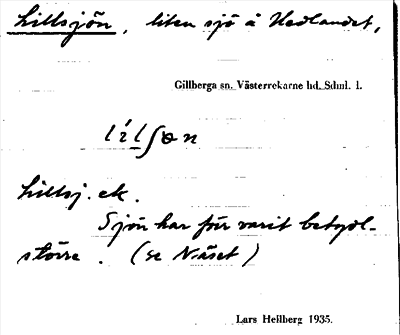 Lillsjön, liten sjö å Hedlandet,
Gillberga sn. Västerrekarne hd. Sdml. 1.
lílʃøn
Lillsj. ek.
Sjön har förr varit betydl-
större. (se Näset)
Lars Hellberg 1935.